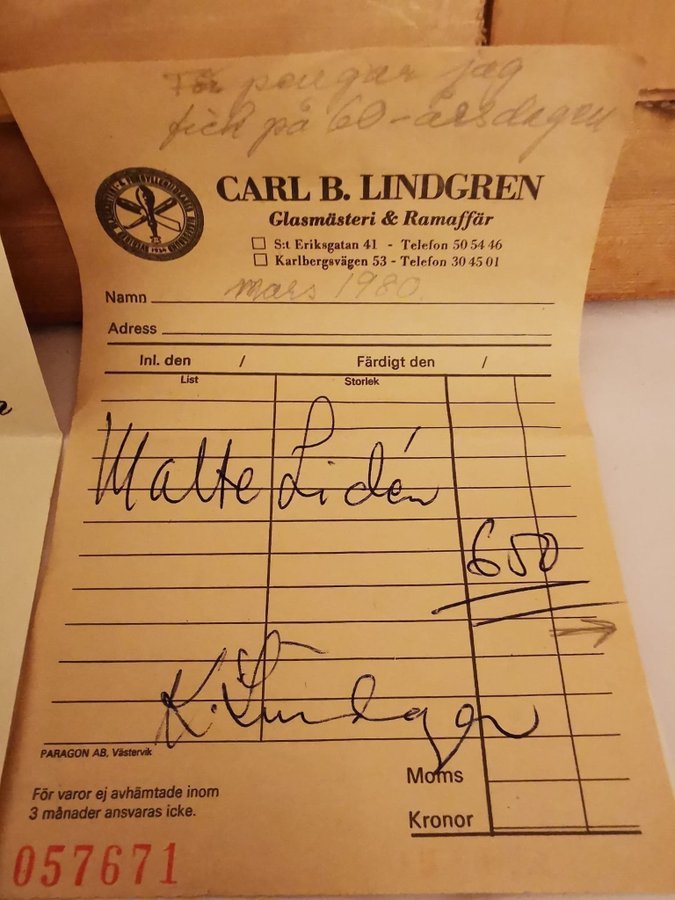 För pengar jag
fick på 60-årsdagen
CARL B. LINDGREN
Glasmästeri & Ramaffär
S:t Eriksgatan 41 - Telefon 50 54 46
Karlbergsvägen 53 - Telefon 30 45 01
Namn mars 1980.
Adress
Inl. den / Färdigt den /
List Storlek
Malte Lidén
650
K. Lindgren
PARAGON AB, Västervik
Moms
För varor ej avhämtade inom
3 månader ansvaras icke.
Kronor
057671